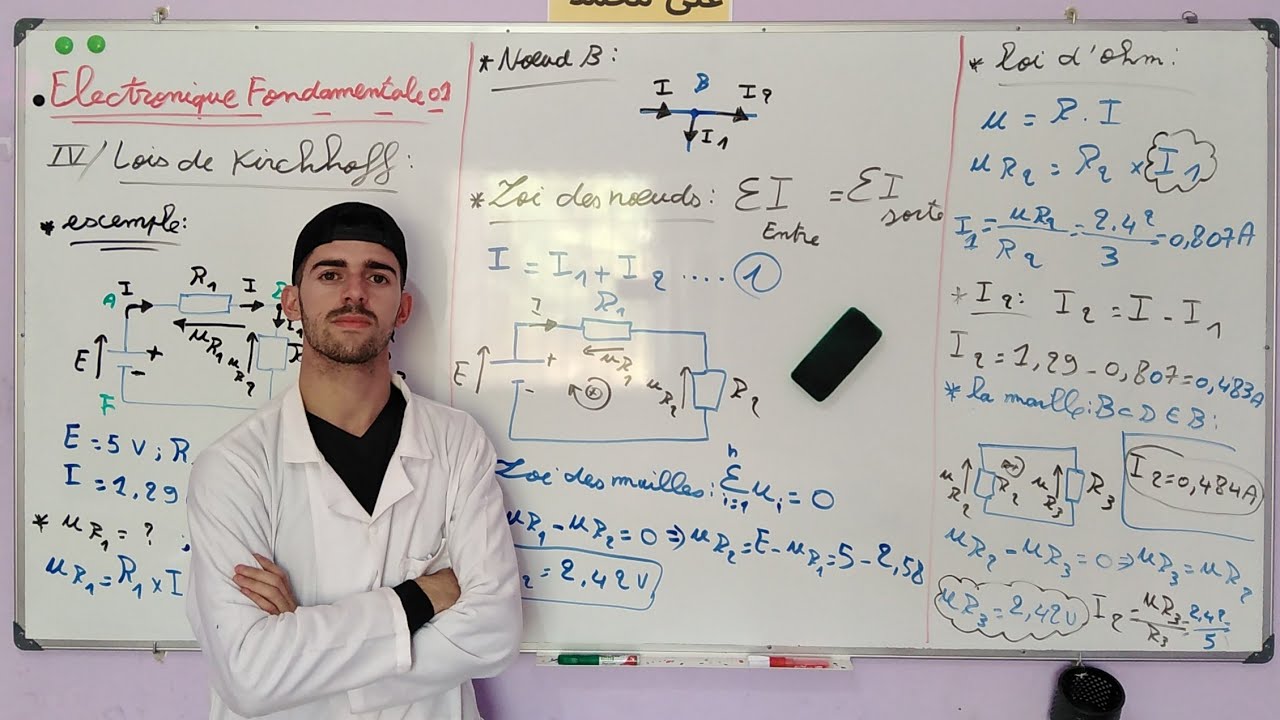 • Electronique Fondamentale 01
IV/ Lois de Kirchhoff :
* exemple:
R1
A I I
uR1
E + uR2
-
F
E = 5 V ; R
I = 1,29
* uR1 = ? ;
uR1 = R1 x I
* Noeud B :
I B I2
I1
* Loi des noeuds : ΣI Entre = ΣI sorte
I = I1 + I2 .... 1
R1
?
+ uR1
E uR2 R2
-
Loi des mailles : n Σ i=1 ui = 0
uR1 - uR2 = 0 => uR2 = E - uR1 = 5 - 2,58
2 = 2,42 V
* Loi d'ohm :
u = R . I
uR2 = R2 x I1
I1 = uR2 / R2 = 2.42 / 3 = 0,807 A
* I2 : I2 = I - I1
I2 = 1,29 - 0,807 = 0,483 A
* la maille : BCDEB :
I2 = 0,484 A
uR2 R2 uR3 R3
uR2 - uR3 = 0 => uR3 = uR2
uR3 = 2,42 V I2 = uR3 / R3 = 2,42 / 5